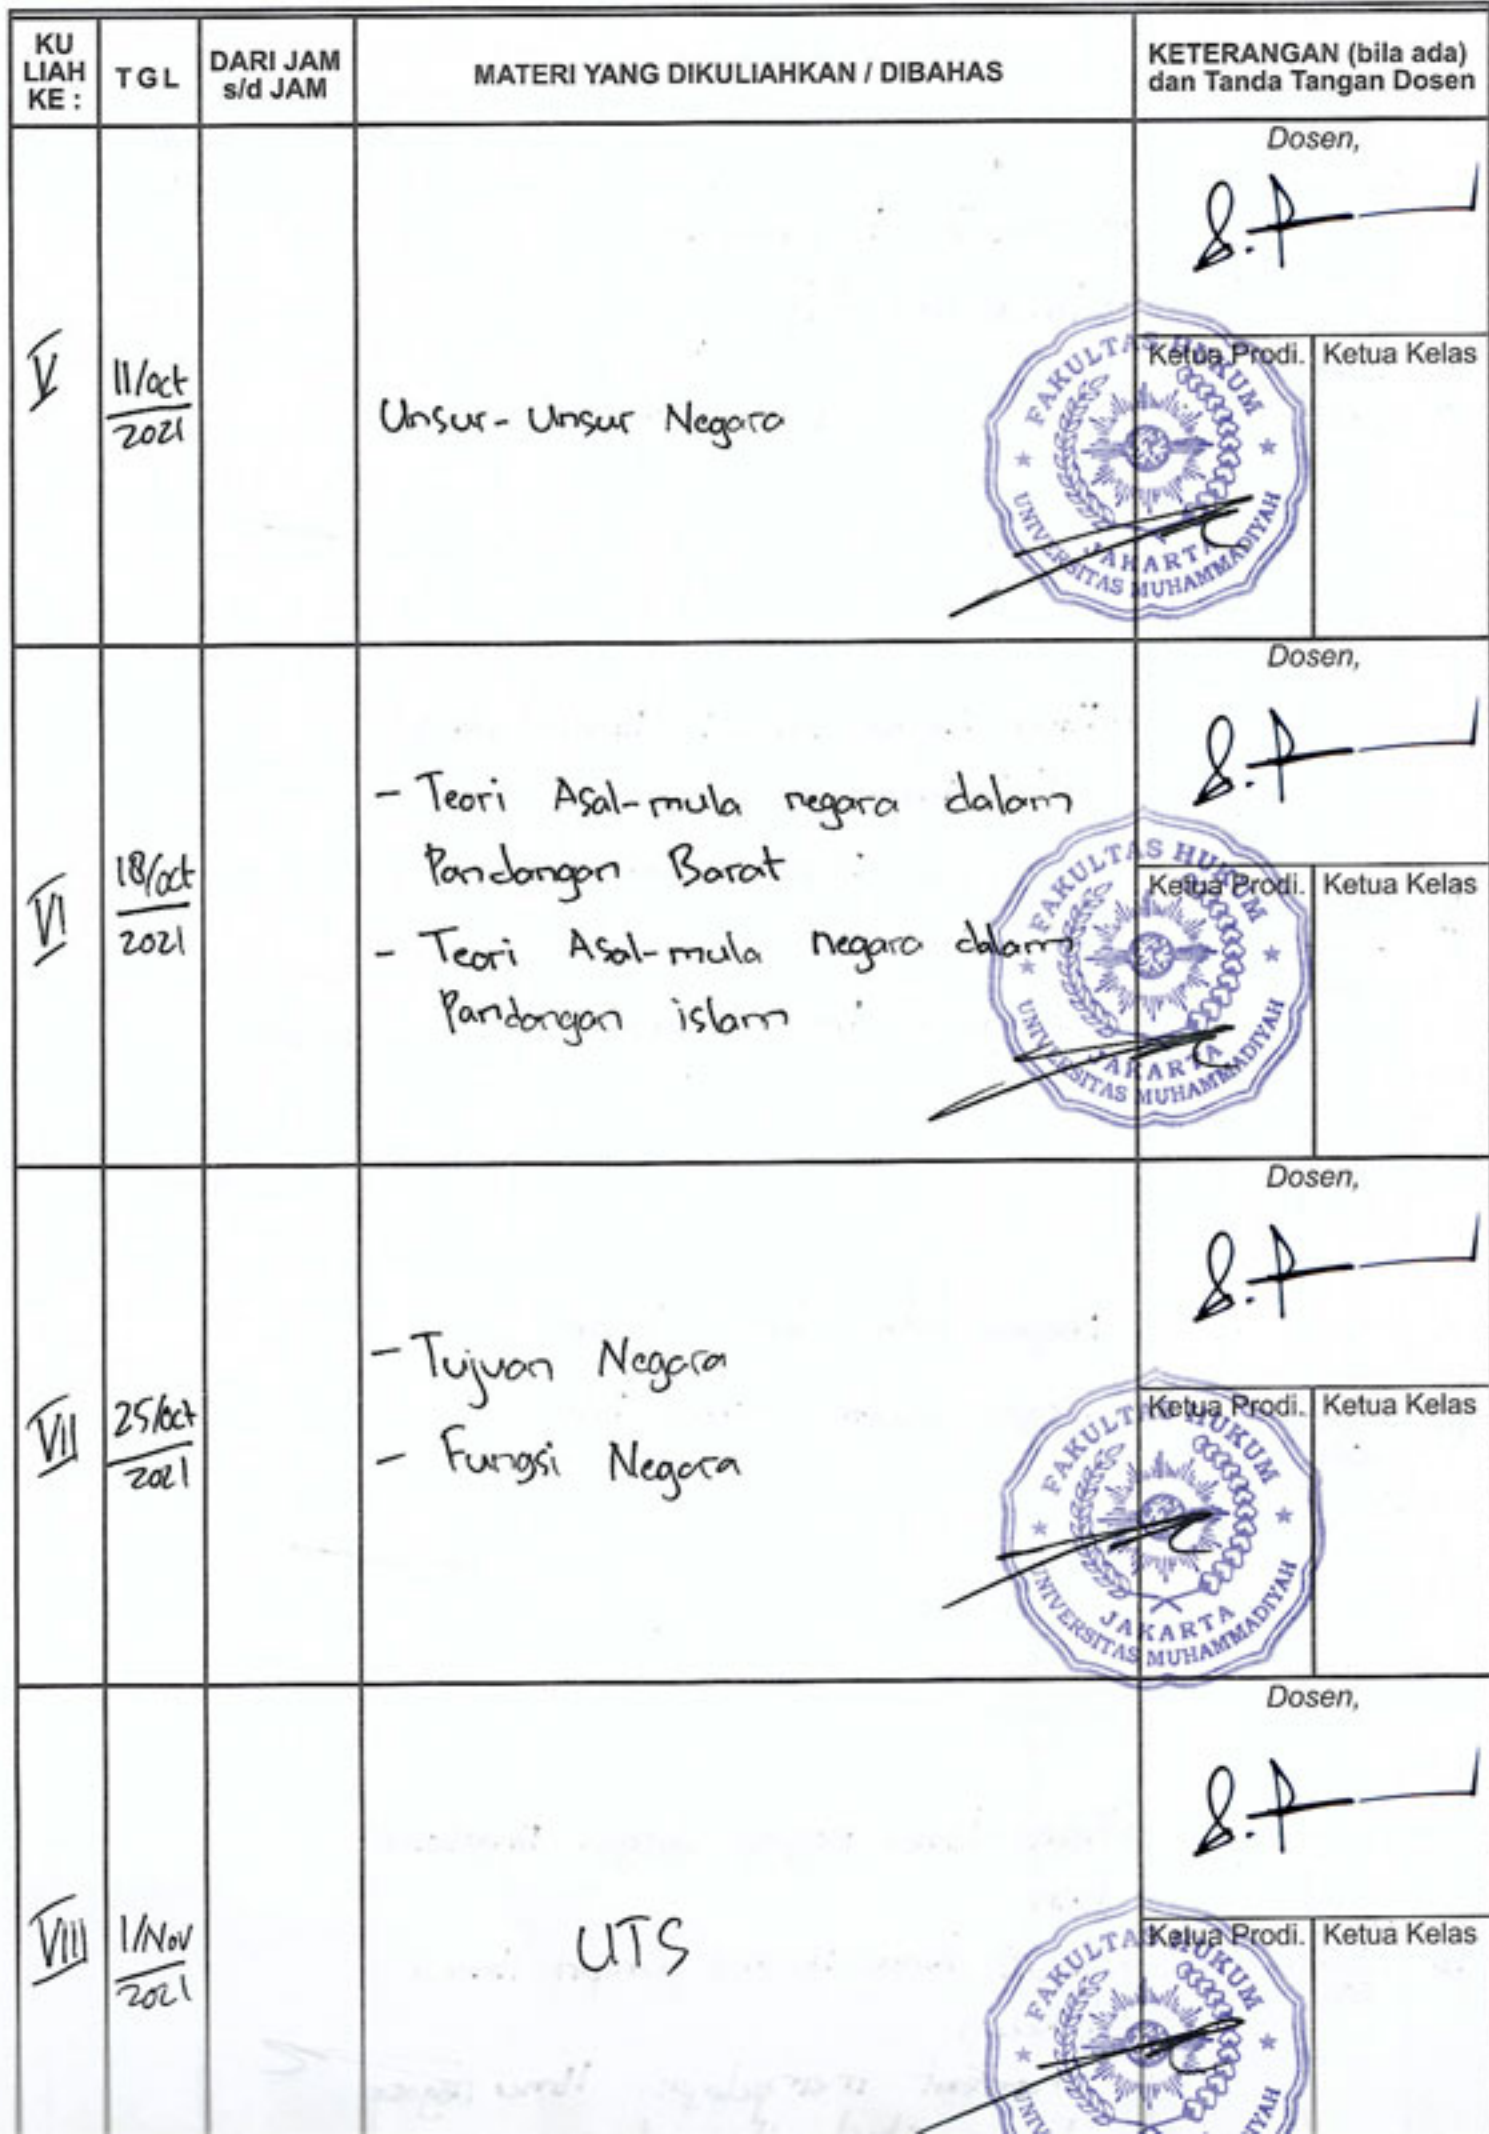 KU LIAH KE :
TGL
DARI JAM s/d JAM
MATERI YANG DIKULIAHKAN / DIBAHAS
KETERANGAN (bila ada) dan Tanda Tangan Dosen
V
11/oct
2021
Unsur-Unsur Negara
Dosen,
Ketua Prodi.
Ketua Kelas
FAKULTAS HUKUM
UNIVERSITAS MUHAMMADIYAH
JAKARTA
VI
18/oct
2021
- Teori Asal-mula negara dalam
Pandangan Barat
- Teori Asal-mula negara dalam
Pandangan islam
Dosen,
Ketua Prodi.
Ketua Kelas
FAKULTAS HUKUM
UNIVERSITAS MUHAMMADIYAH
JAKARTA
VII
25/oct
2021
- Tujuan Negara
- Fungsi Negara
Dosen,
Ketua Prodi.
Ketua Kelas
FAKULTAS HUKUM
UNIVERSITAS MUHAMMADIYAH
JAKARTA
VIII
1/Nov
2021
UTS
Dosen,
Ketua Prodi.
Ketua Kelas
FAKULTAS HUKUM